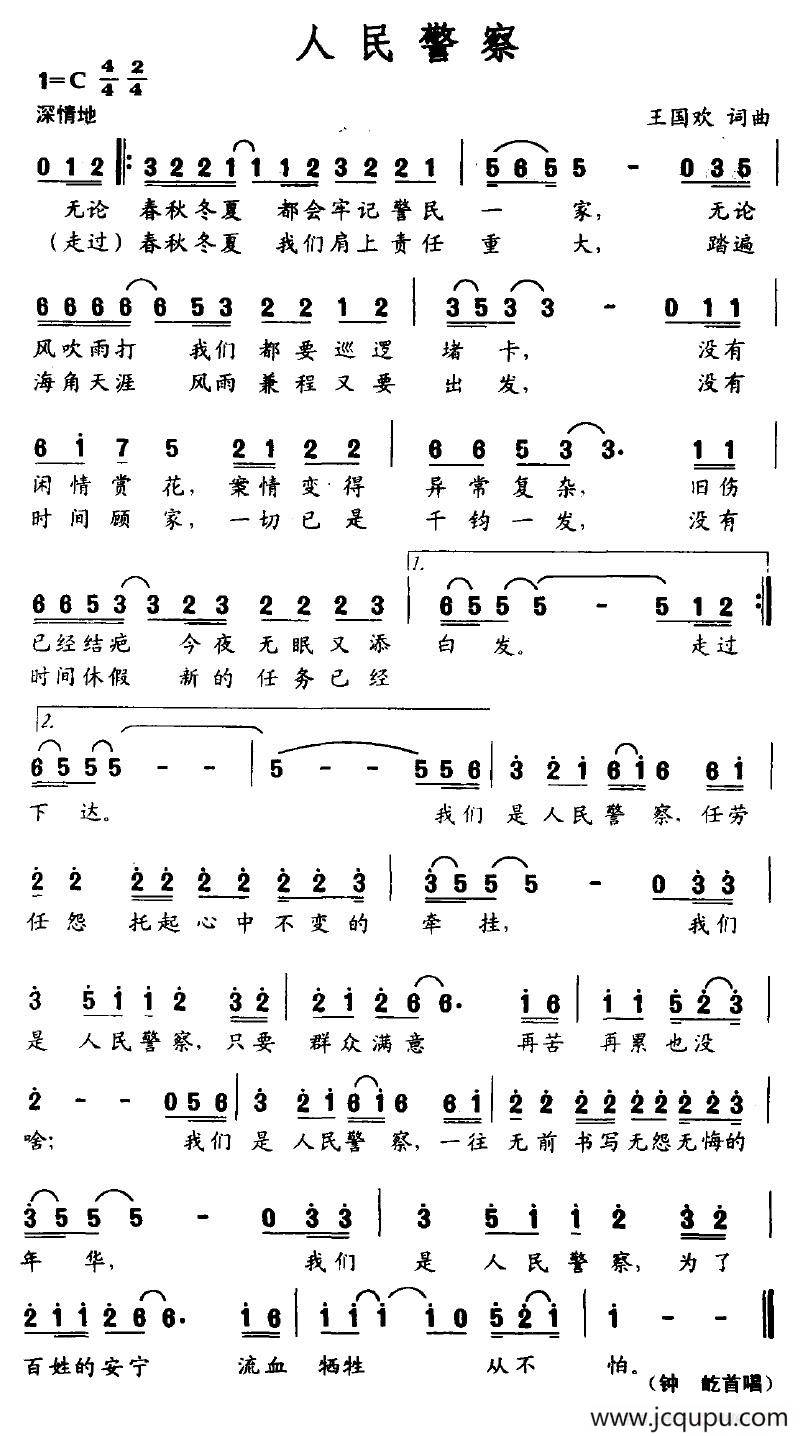 人民警察
1=C 4/4 2/4
深情地
王国欢 词曲
0 1 2 3 2 2 1 1 1 2 3 2 2 1 5 6 5 5 - 0 3 5
无论 春秋冬夏 都会牢记警民 一 家, 无论
(走过)春秋冬夏 我们肩上责任 重 大, 踏遍
6 6 6 6 6 5 3 2 2 1 2 3 5 3 3 - 0 1 1
风吹雨打 我们都要巡逻 堵 卡, 没有
海角天涯 风雨兼程又要 出 发, 没有
6 i 7 5 2 1 2 2 6 6 5 3 3. 1 1
闲情赏花, 案情变得 异常复杂, 旧伤
时间顾家, 一切已是 千钧一发, 没有
1.
6 6 5 3 3 2 3 2 2 2 3 6 5 5 5 - 5 1 2
已经结疤 今夜无眠又添 白 发。 走过
时间休假 新的任务已经
2.
6 5 5 5 - - 5 - - 5 5 6 3 2 i 6 i 6 6 i
下 达。 我们是人民警 察, 任劳
2 2 2 2 2 2 2 2 3 3 5 5 5 - 0 3 3
任怨 托起心中不变的 牵 挂, 我们
3 5 i i 2 3 2 2 i 2 6 6. i 6 i i 5 2 3
是 人民警察, 只要 群众满意 再苦 再累也没
2 - - 0 5 6 3 2 i 6 i 6 6 i 2 2 2 2 2 2 2 3
啥; 我们是人民警 察, 一往 无前 书写无怨无悔的
3 5 5 5 - 0 3 3 3 5 i i 2 3 2
年 华, 我们 是 人民警察, 为了
2 i i 2 6 6. i 6 i i i i 0 5 2 i i - -
百姓的安宁 流血 牺牲 从不 怕。
(钟 屹首唱)
www.jcqupu.com